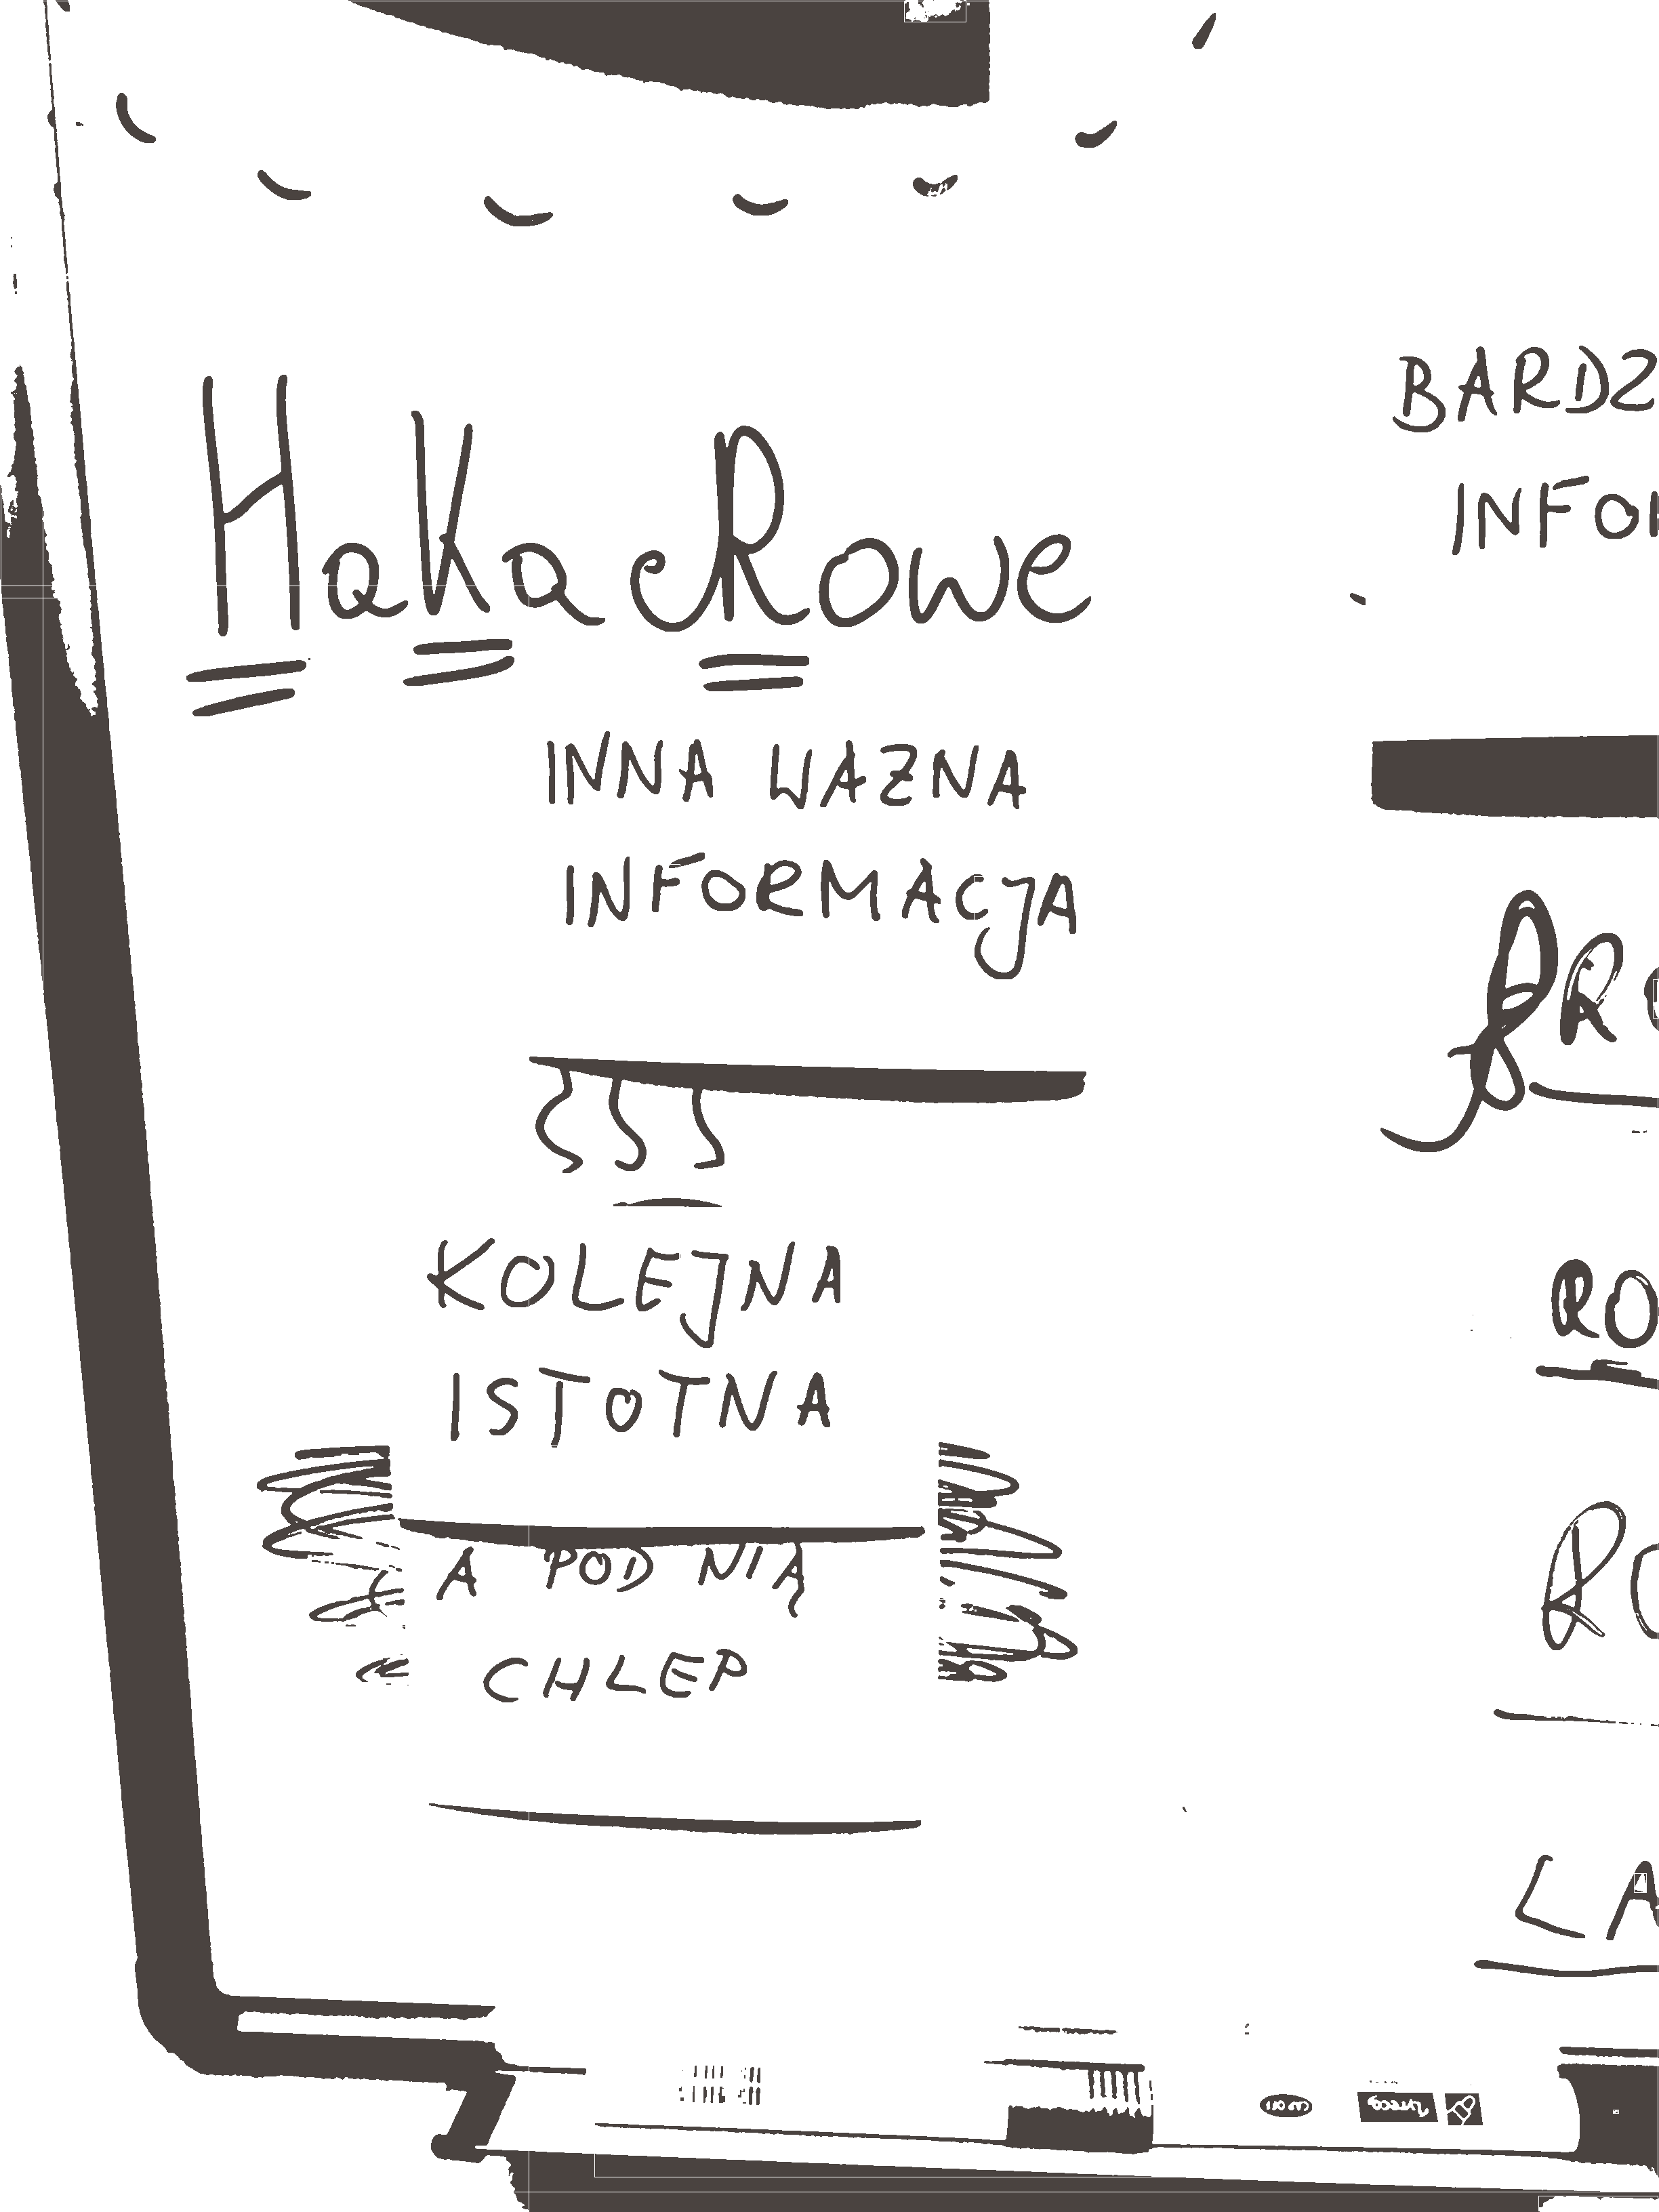 HaKaRowe
INNA WAZNA
INFORMACJA
KOLEJNA
ISTOTNA
A POD NIĄ
CHLEP
BARDZ
INFOR
RO
RO
LA